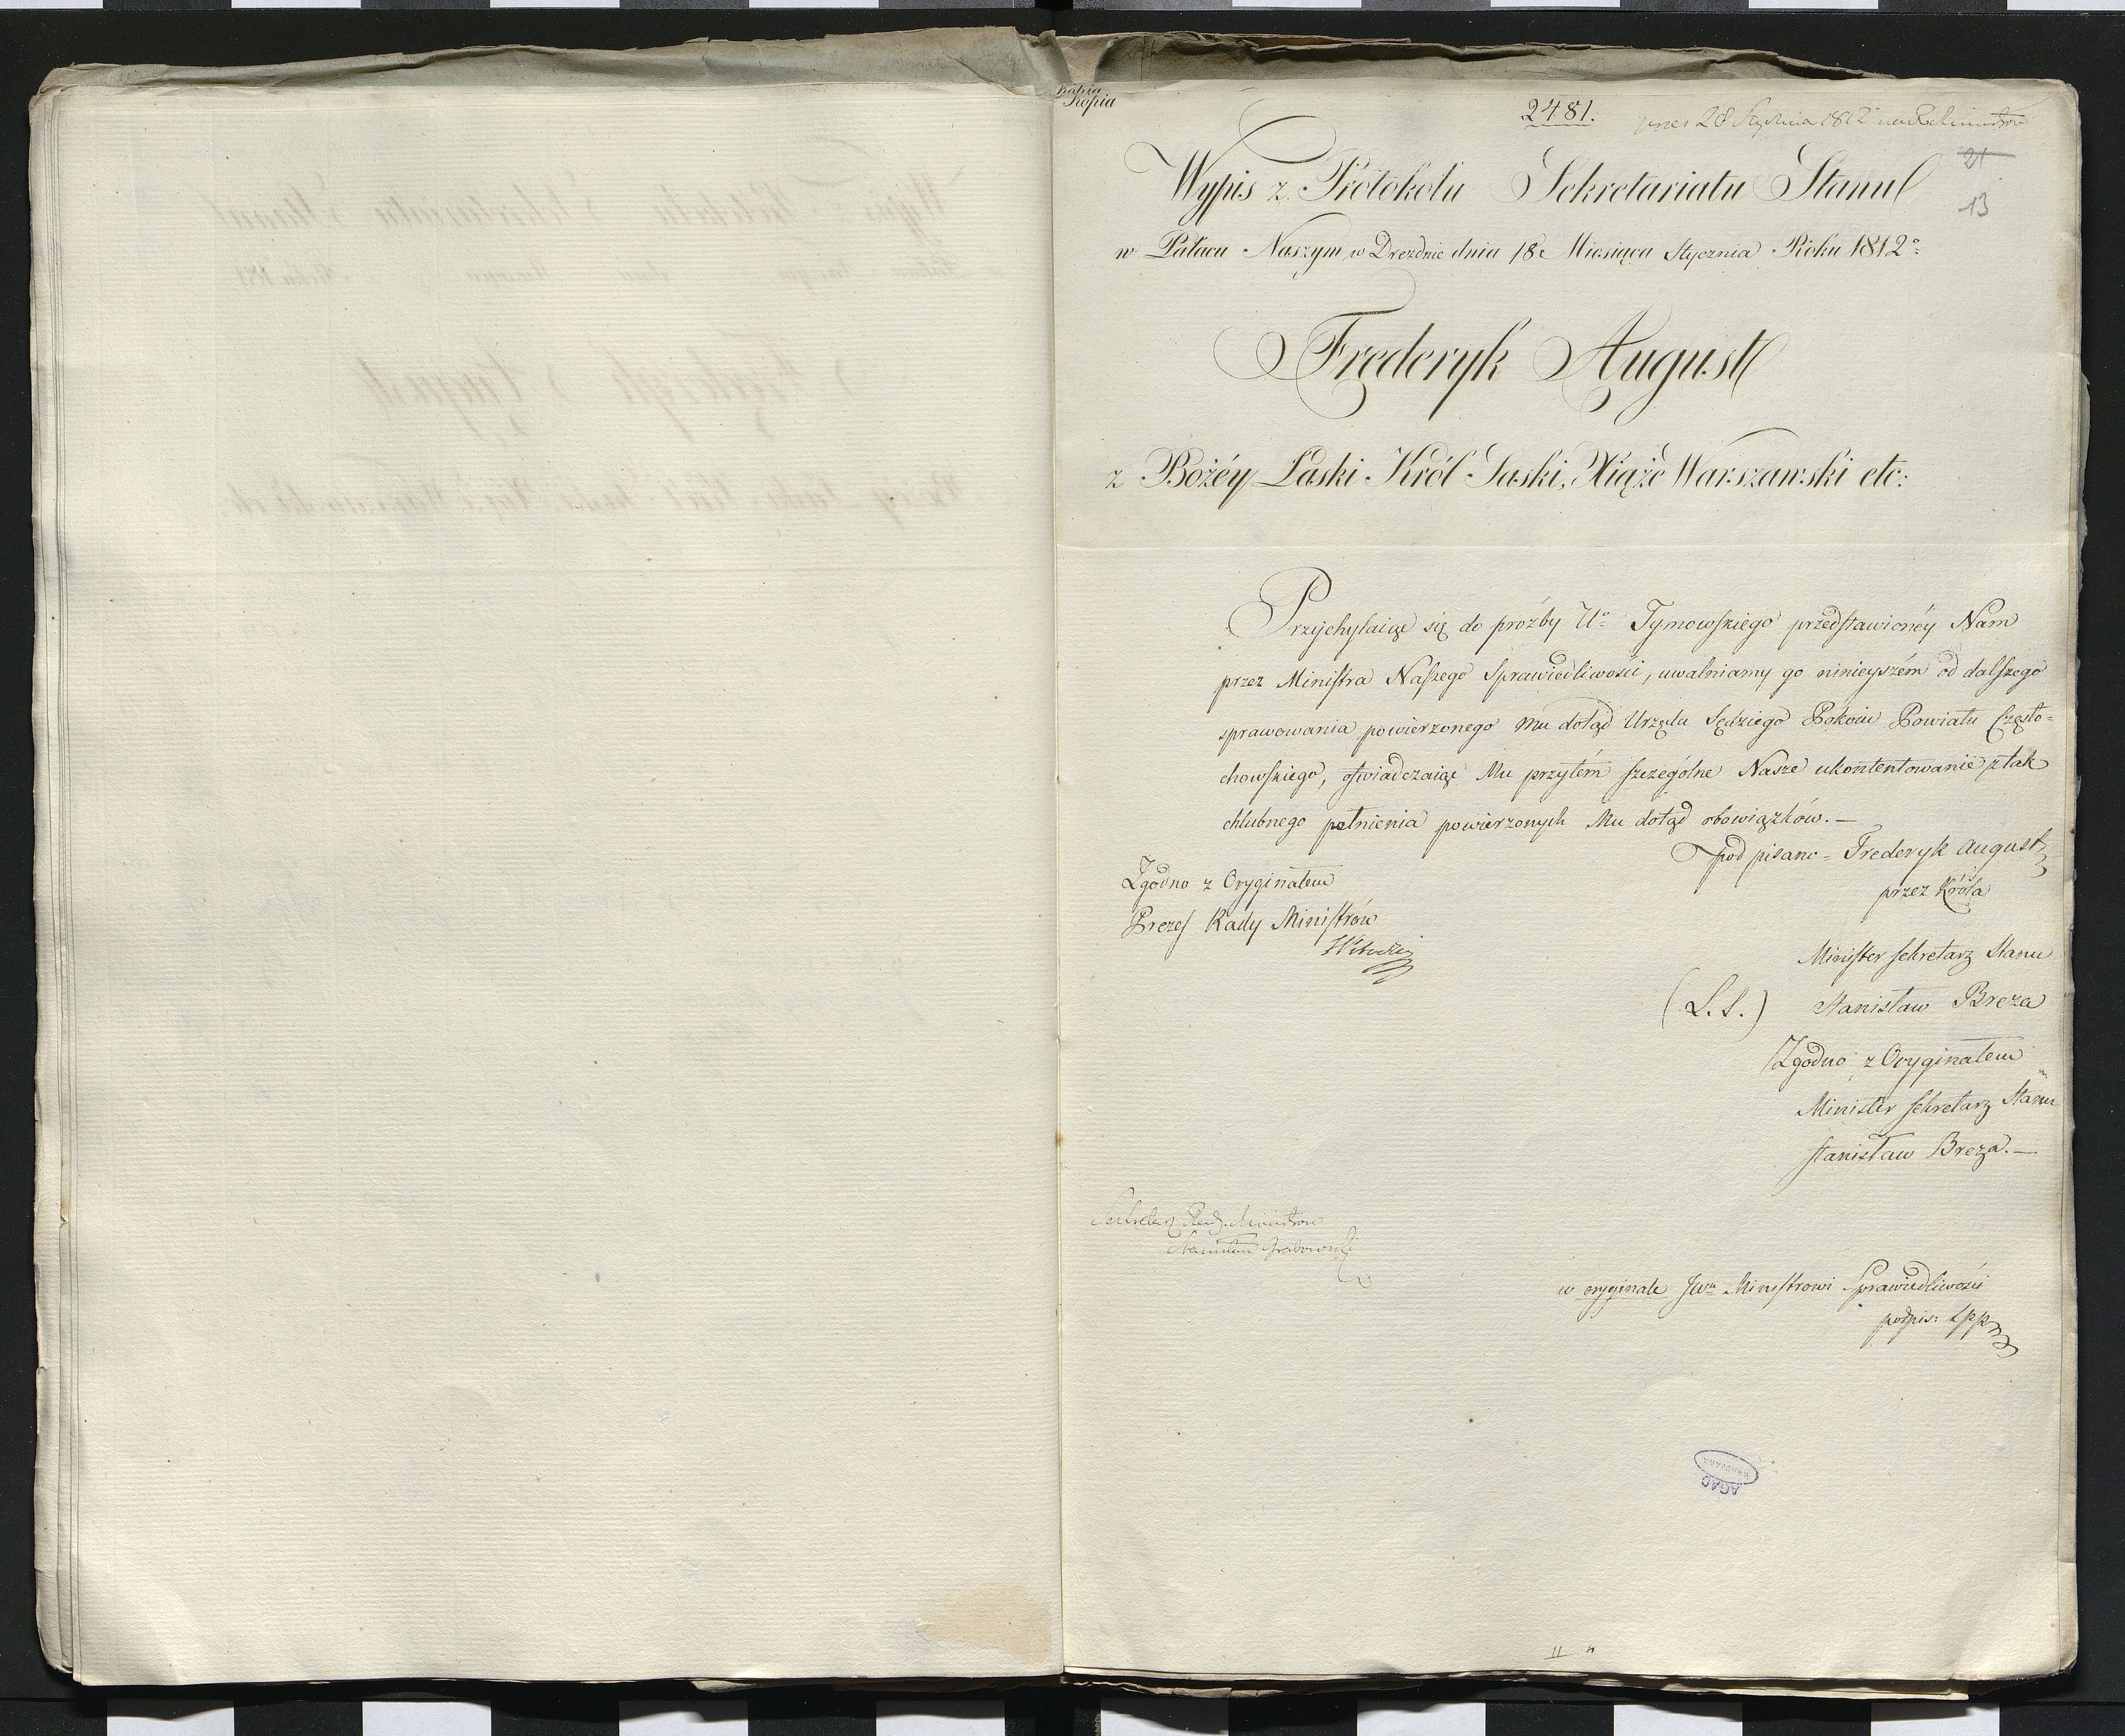 Kopia
2481.
28 Stycznia 1812
21
13
Wypis z Protokołu Sekretariatu Stanu
w Pałacu Naszym w Dreźdnie dnia 18. Miesiąca Stycznia Roku 1812º
Frederyk August
z Bożéy Łaski Król Saski, Xiążę Warszawski etc:
Przychylaiąc się do prożby Uº Tymowskiego przedstawionéy Nam
przez Ministra Naszego Sprawiedliwości, uwalniamy go ninieyszém od dalszego
sprawowania powierzonego mu dotąd Urzędu Sędziego Pokoiu Powiatu Często=
chowskiego, oświadczaiąc Mu przytém szczególne Nasze ukontentowanie z tak
chlubnego pełnienia powierzonych Mu dotąd obowiązków. —
podpisano = Frederyk August
przez Króla
Zgodno z Oryginałem
Prezes Rady Ministrów
Minister Sekretarz Stanu
(L. S.) Stanisław Breza
Zgodno z Oryginałem
Minister Sekretarz Stanu
Stanisław Breza. —
Sekretarz Rady Ministrów
Stanisław Grabowski
w oryginale JWu Ministrowi Sprawiedliwości
podpis:
AGAD
WARSZAWA